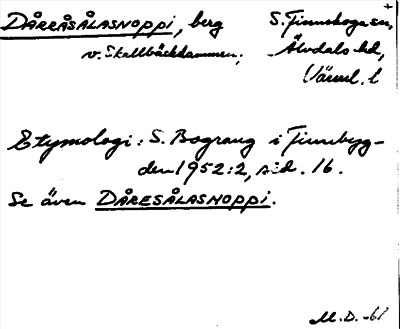 DÅRRÅSÅLASNOPPI, berg S. Finnskoga sn,
v. Skallbäcksdammen. Älvdals hd,
Värml. l
Etymologi: S. Bograng i Finnbyg-
den 1952:2, sid. 16.
Se även DÅRESÅLASNOPPI.
M.D. -61